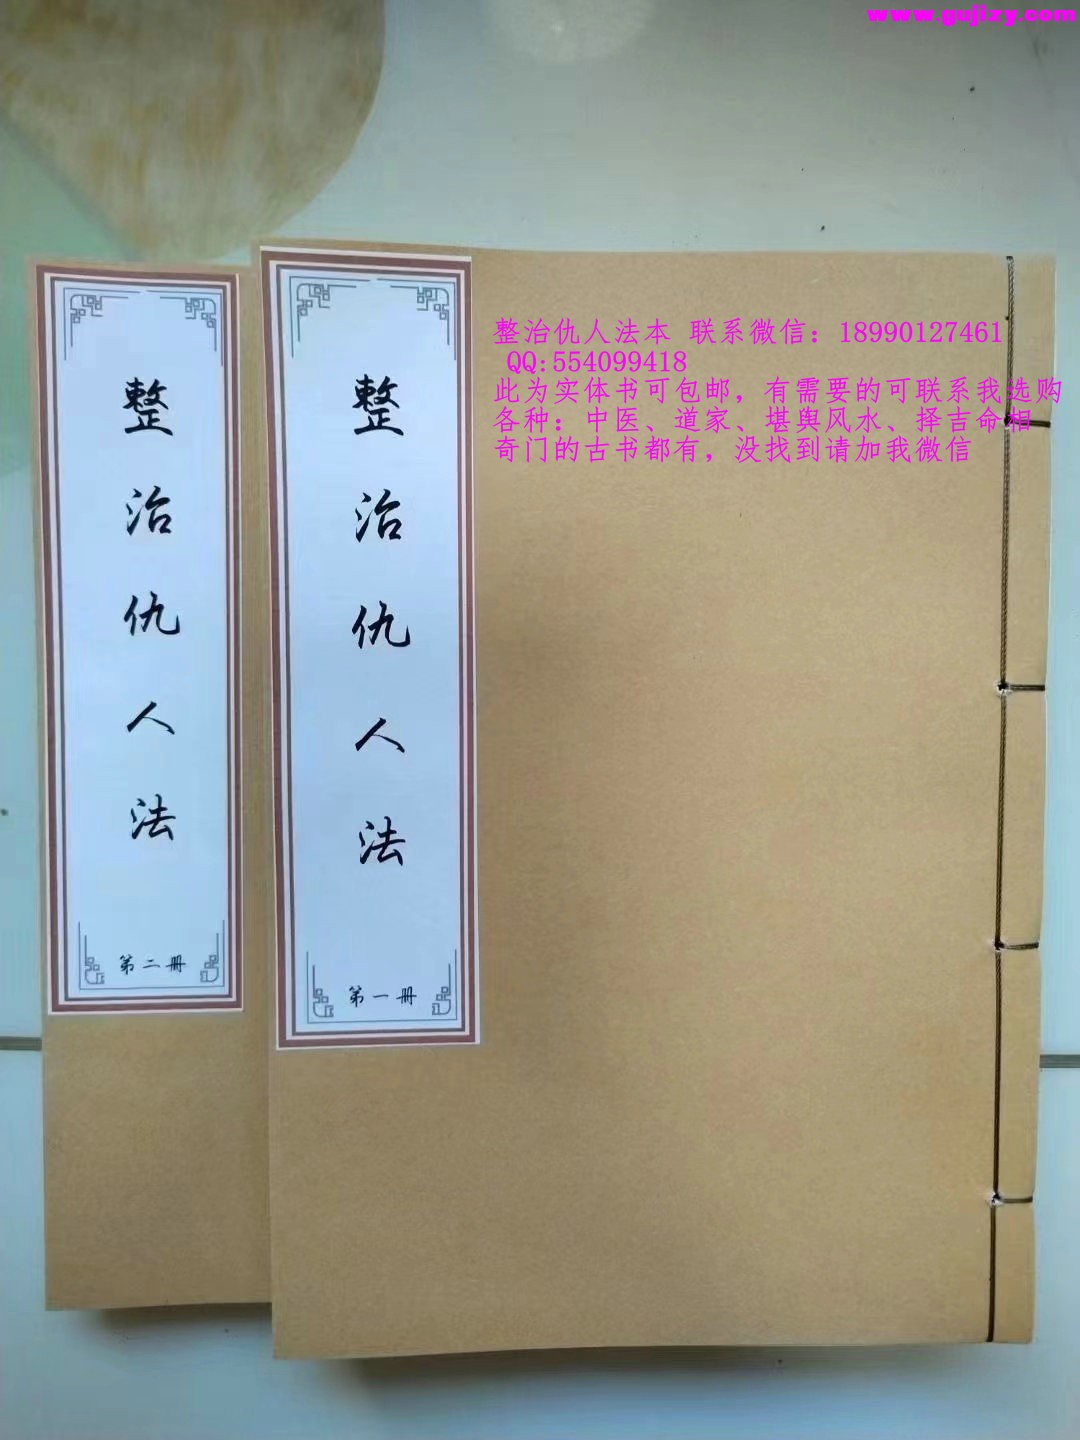 www.gujizy.com
整治仇人法本 联系微信：18990127461
QQ:554099418
此为实体书可包邮，有需要的可联系我选购
各种：中医、道家、堪舆风水、择吉命相
奇门的古书都有，没找到请加我微信
整治仇人法
第一册
整治仇人法
第二册